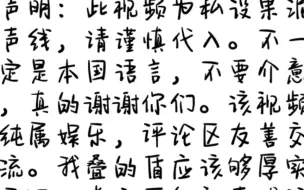 声明：此视频为私设果泥
声线，请谨慎代入。不一
定是本国语言，不要介意
，真的谢谢你们。该视频
纯属娱乐，评论区友善交
流。我叠的盾应该够厚实